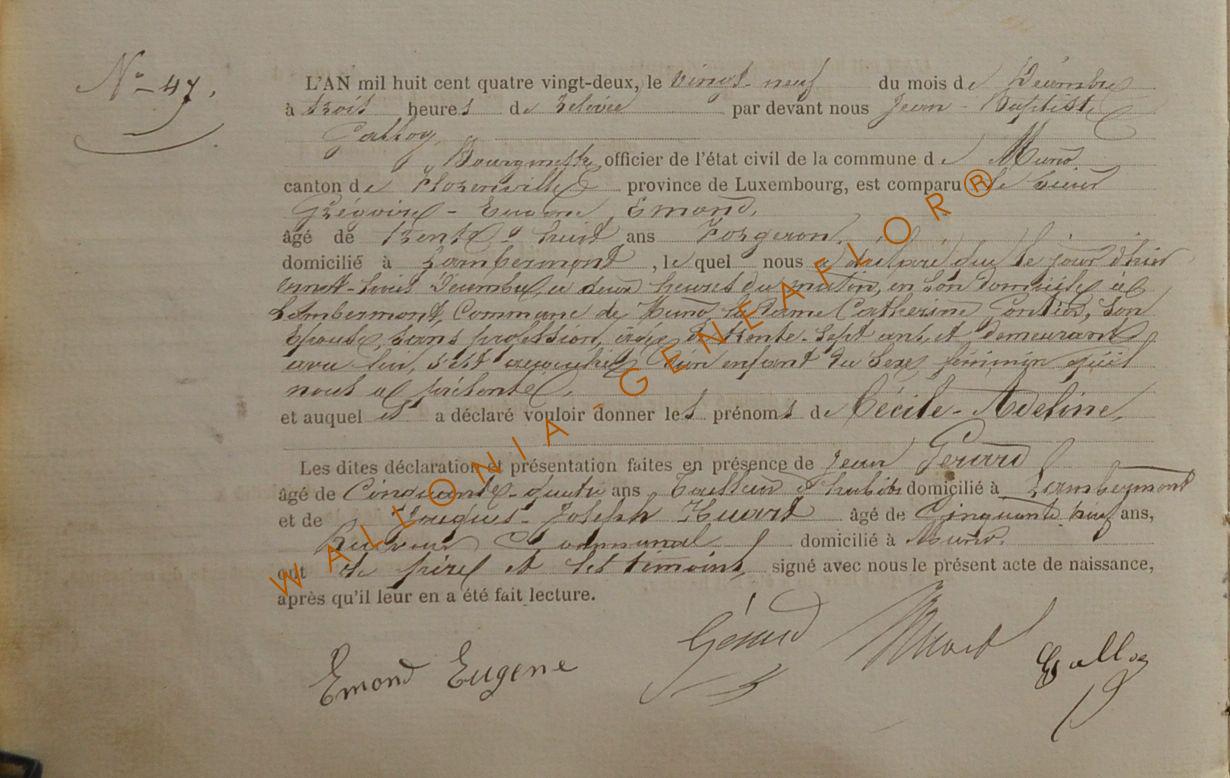 N° 47.
L'AN mil huit cent quatre vingt-deux, le vingt-neuf du mois de Décembre
à trois heures de relevée par devant nous Jean-Baptiste
Galloy,
Bourgmestre, officier de l'état civil de la commune de Muno
canton de Florenville province de Luxembourg, est comparu le sieur
Grégoire-Eugène Emond,
âgé de trente-huit ans Forgeron,
domicilié à Lambermont, lequel nous a déclaré que le jour d'hier
vingt-huit Décembre, à deux heures du matin, en son domicile à
Lambermont, Commune de Muno, la Dame Catherine Pontier, son
épouse, sans profession, âgée de trente-sept ans, et demeurant
avec lui, s'est accouchée d'un enfant du sexe féminin qu'il
nous a présenté,
et auquel il a déclaré vouloir donner les prénoms de Cécile-Adeline,
Les dites déclaration et présentation faites en présence de Jean Gérard
âgé de Cinquante-quatre ans tailleur d'habits domicilié à Lambermont
et de Jacques-Joseph Huart âgé de Cinquante neuf ans,
Receveur Communal domicilié à Muno.
ont le père et les témoins, signé avec nous le présent acte de naissance,
après qu'il leur en a été fait lecture.
Emond Eugene Gérard Huart Galloy
WALLONIA-GENEAFLOR®